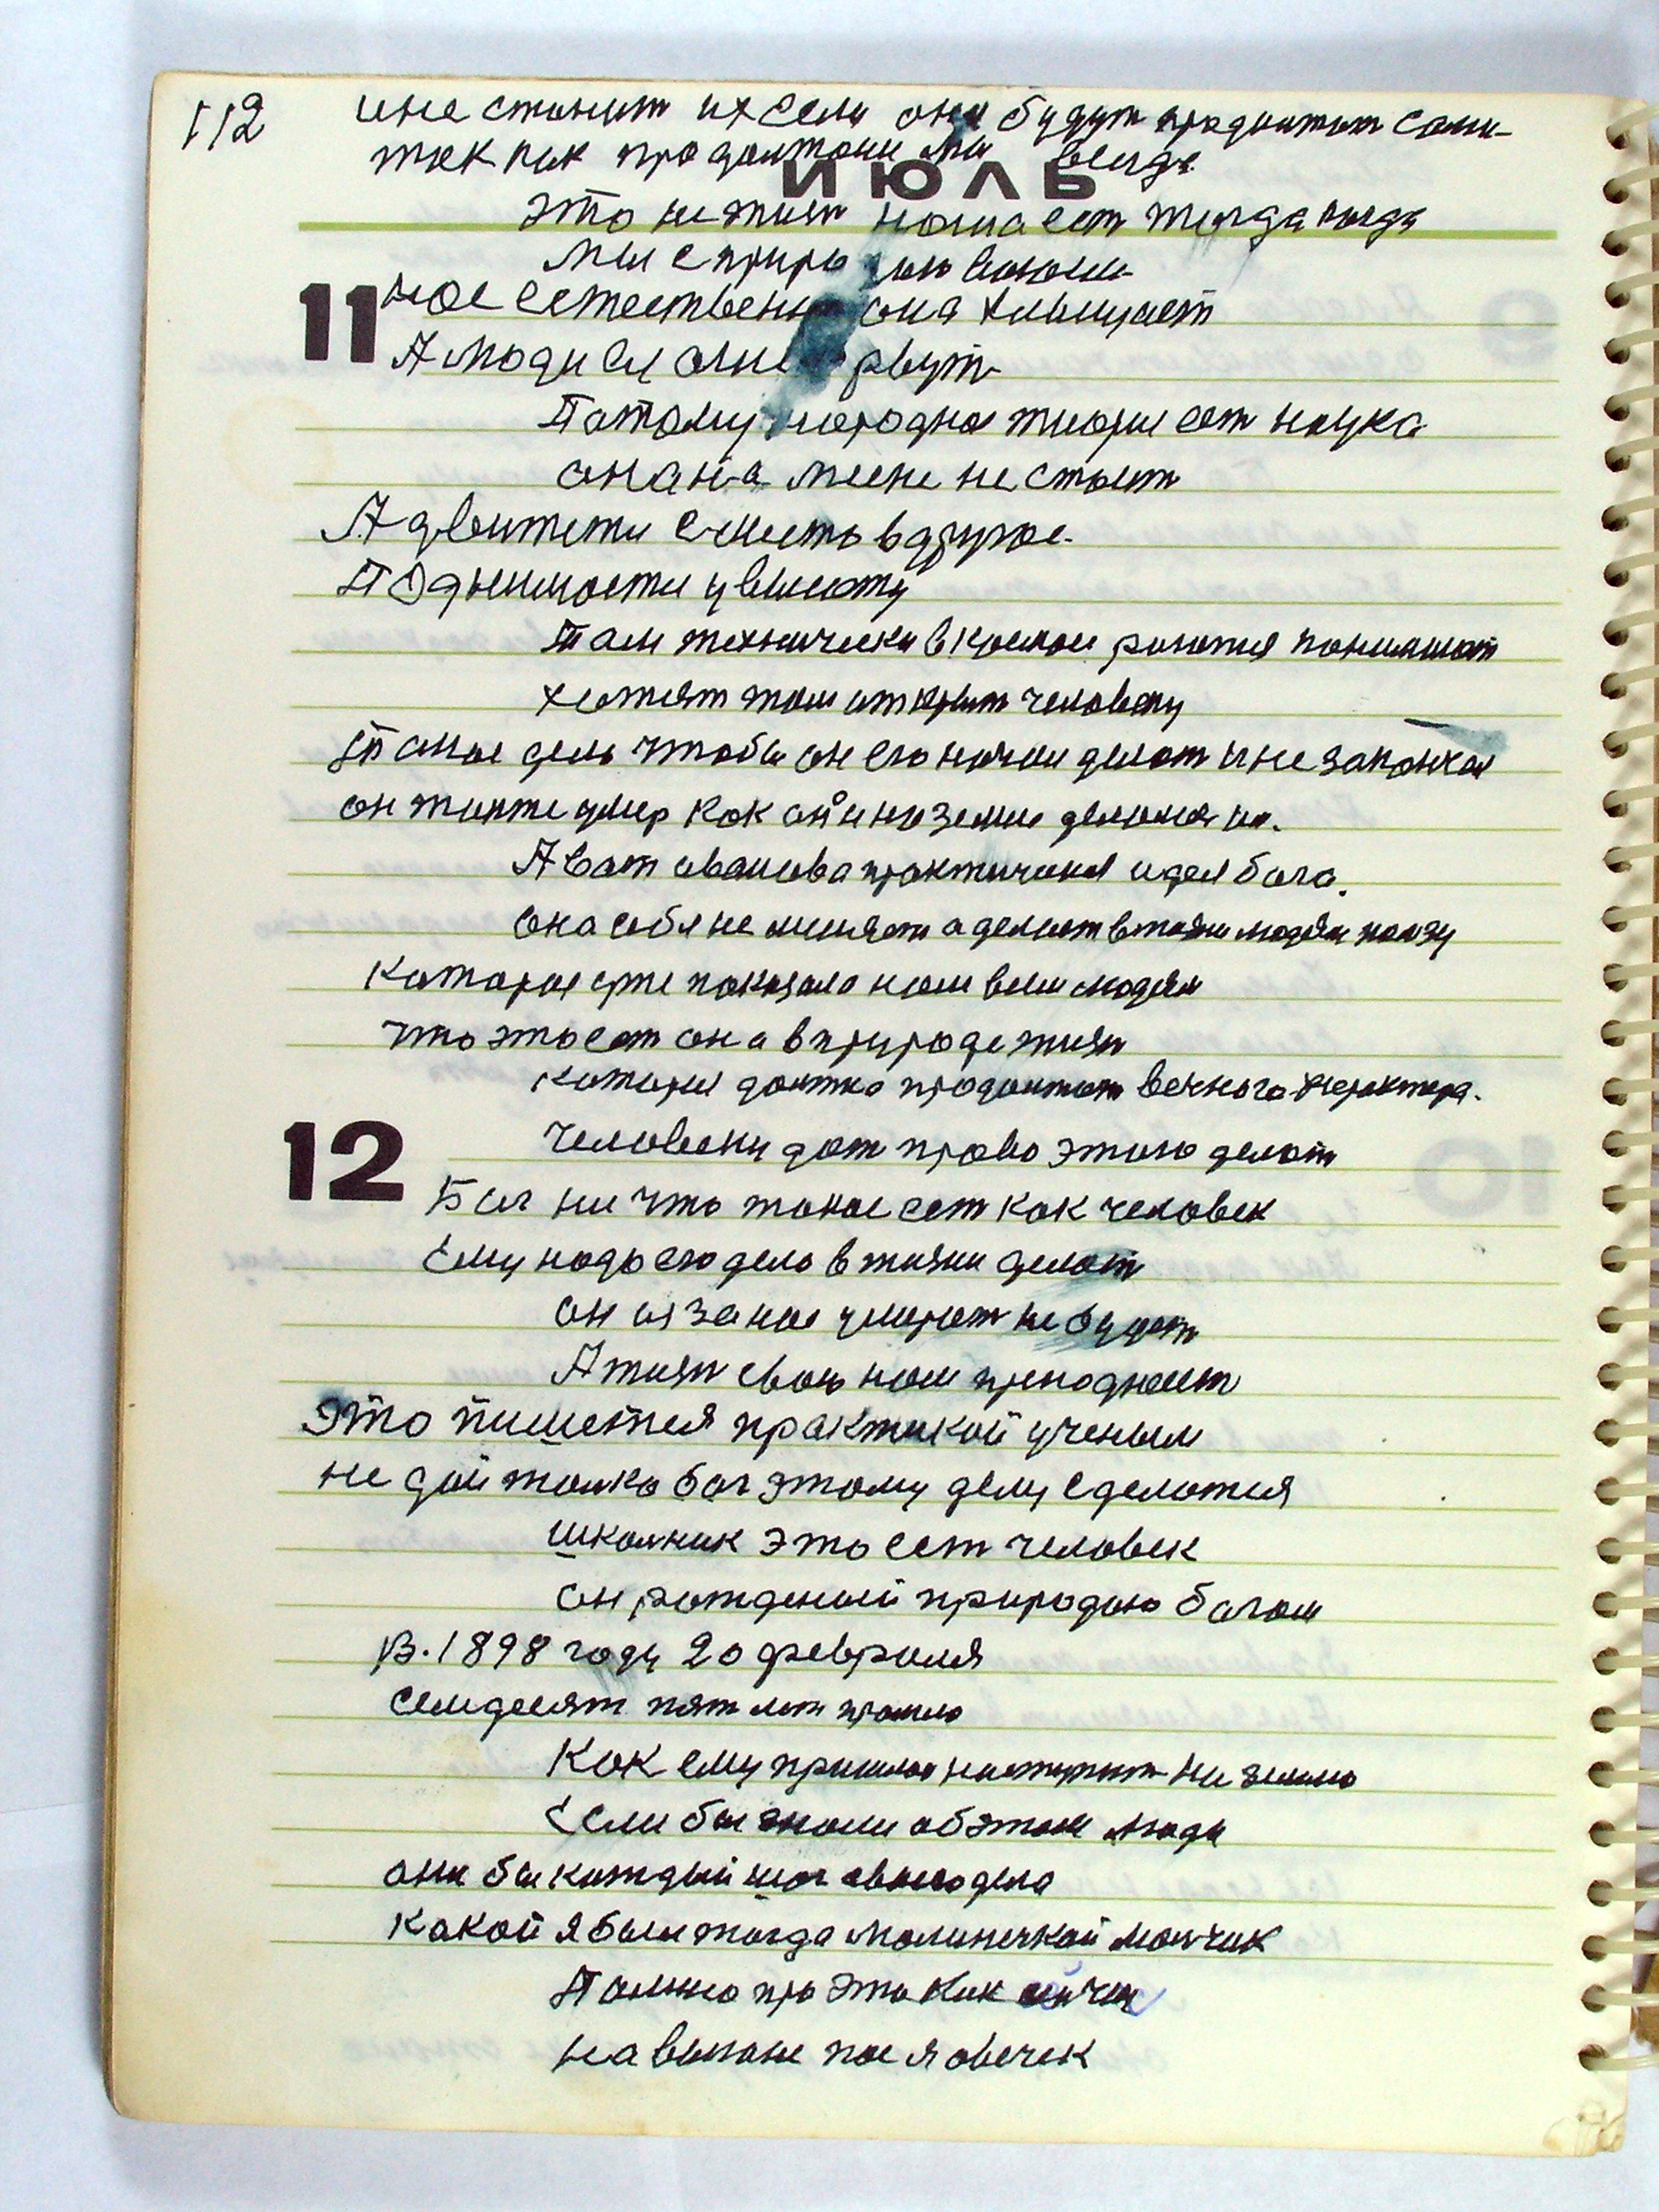 112
и не станит их если они будут продолжат сами
так как продолжали мы везде
ИЮЛЬ
это не жизн наша ест тогда когда
мы с природою воюем
11
нас естественно она
А люди ея они рвут
Патаму народна ест наука
она на мести не стоит
А двигится с места в другое
Поднимается у висоту
Там технически в космосе
хотят там открыт человеку
Такое дело чтобы он его начал делат и не закончил
он также умир как он и на земли делался
А вот иванова практическия идея бога.
она себя не миняет а делает в жизни людям ползу
которая уже показала нам всем людям
что это ест она в природе жизн
которая должна продолжат вечного характера.
12
человеку дат право этого делат
Бог ни что такое ест как человек
Ему надо его дело в жизни делат
он из за нас умират не будет
А жизн свою нам преподнесет
Это пишется практикой ученым
не дай толко бог этому делу сделатся
школник это ест человек
он рожденый природаю богом
в. 1898 году 20 февраля
семдесят пят лет прошло
Как ему пришлос наступит на землю
Если бы знали об этом люди
они бы каждый шаг своего дела
какой я был тогда малинечкай малчик
Помню про это как
на выгоне пас я овечек